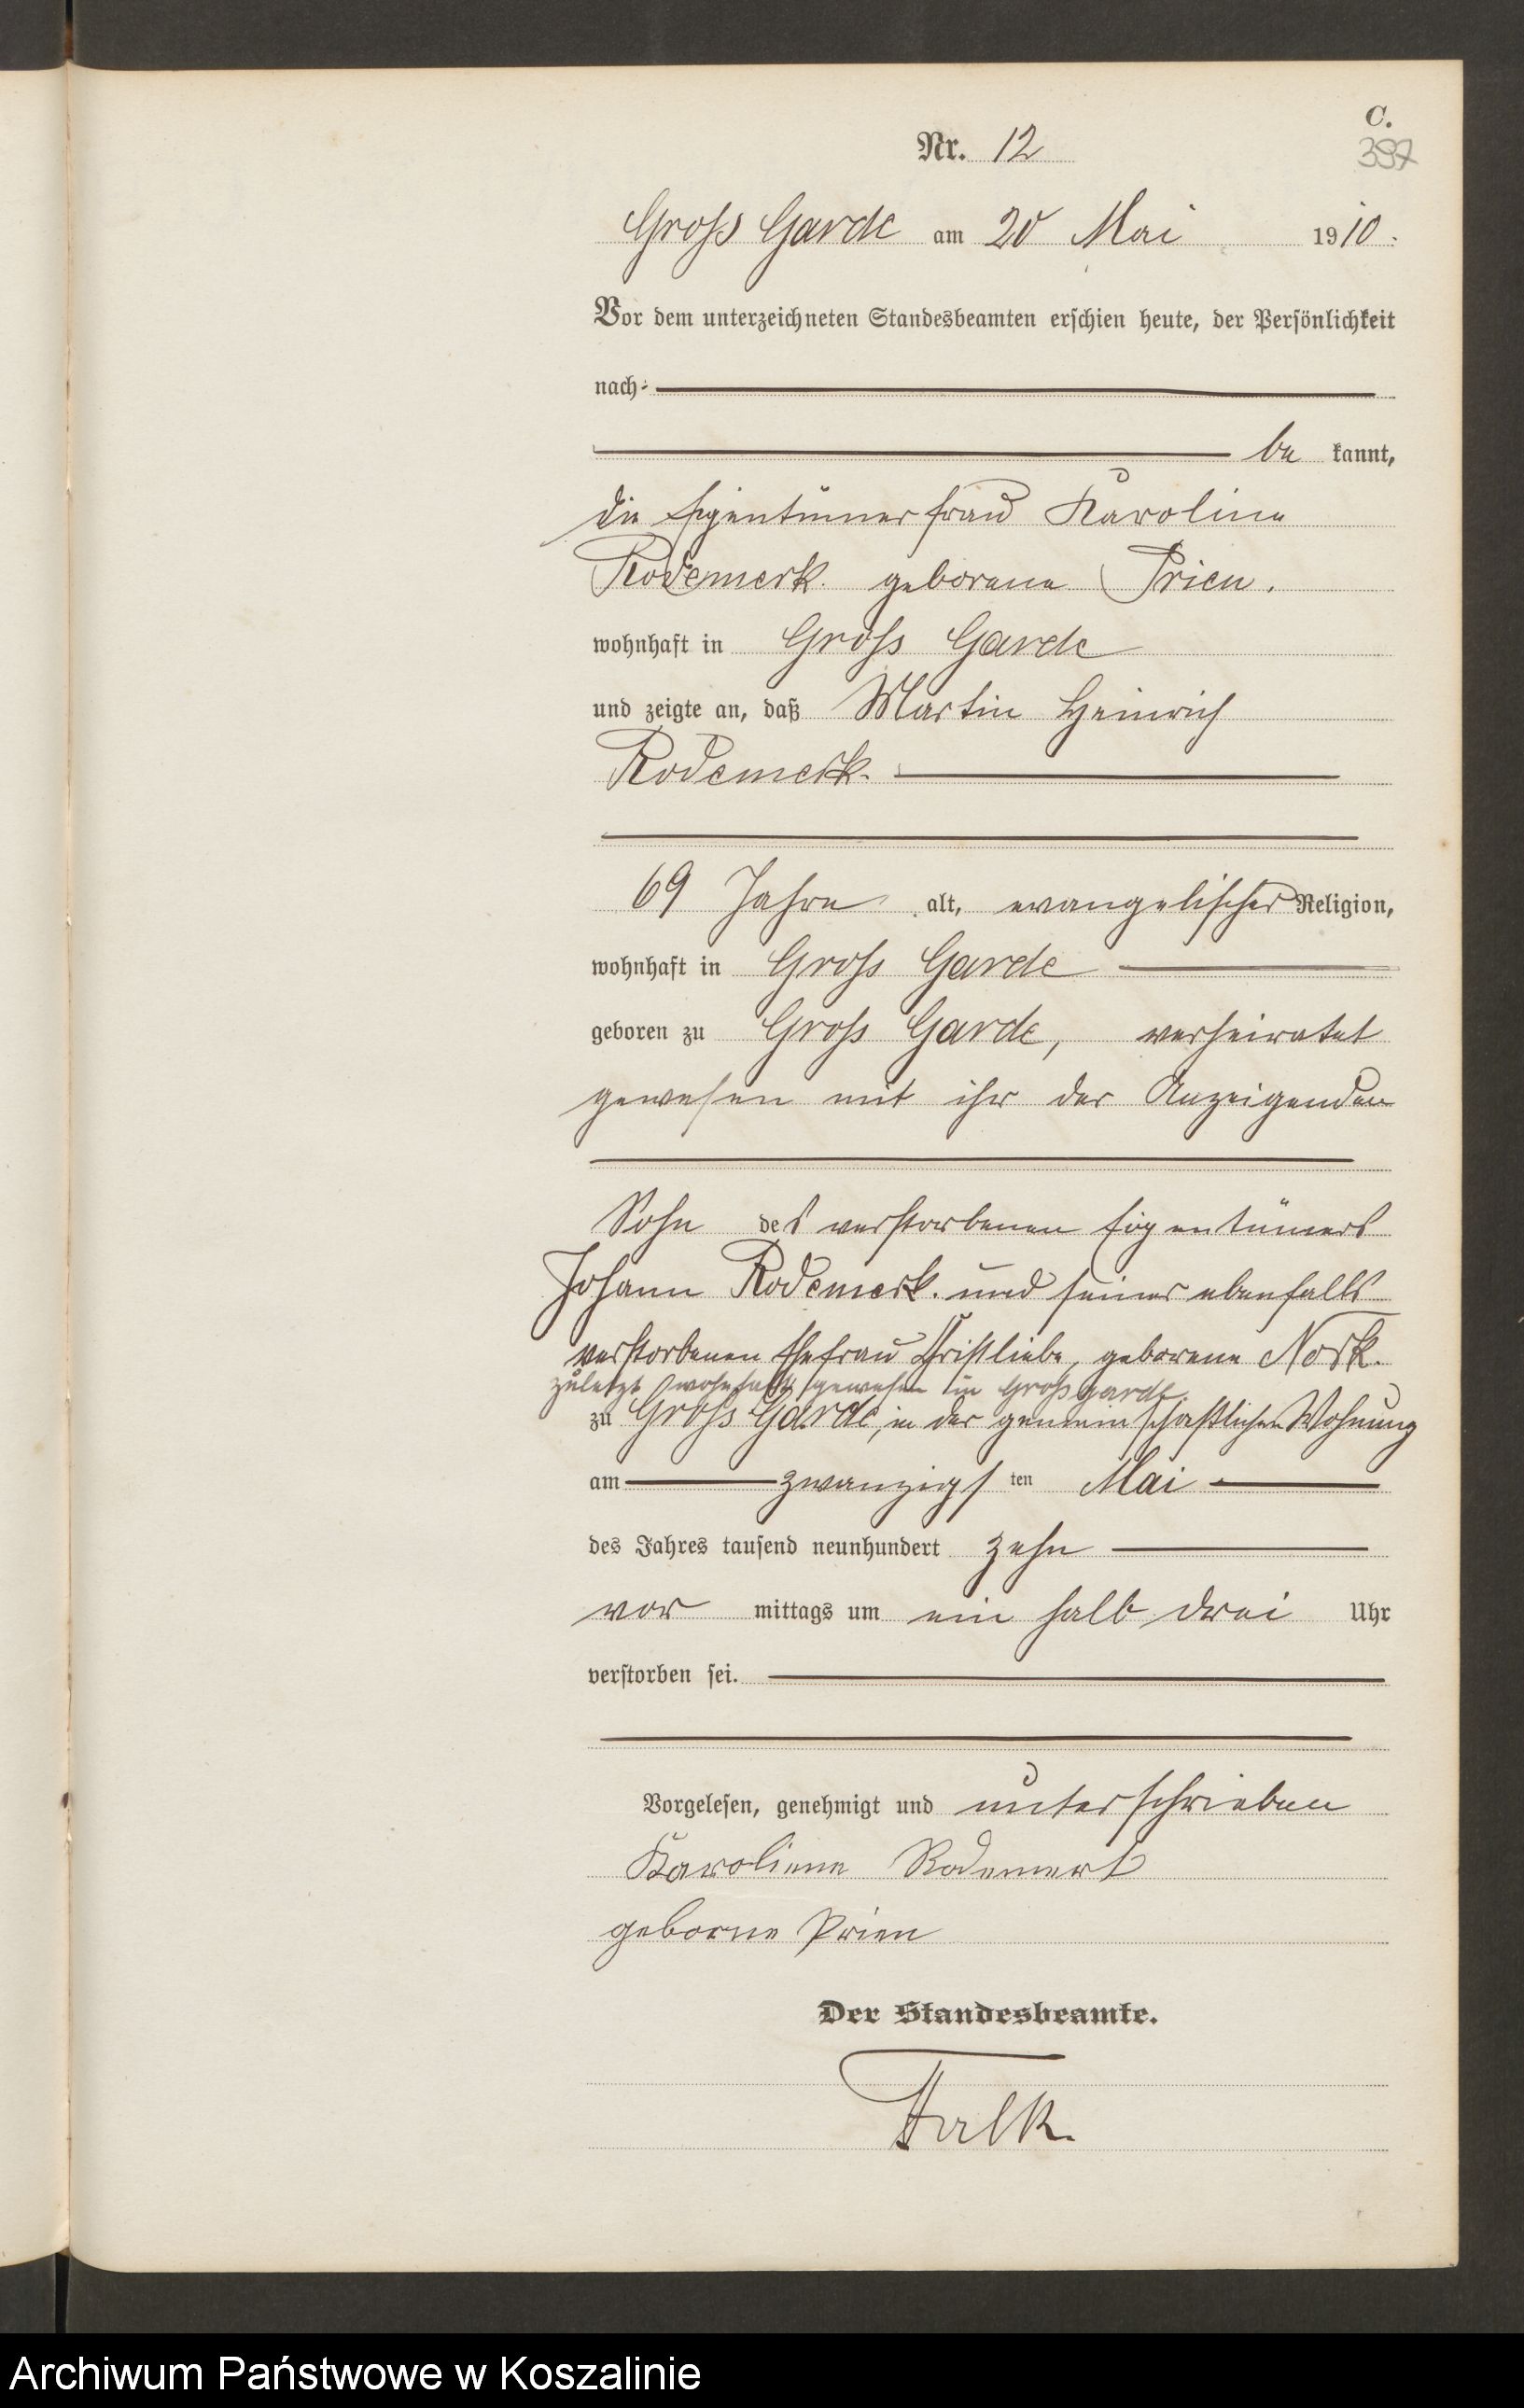 C.
Nr. 12
397
Gross Garde am 20 Mai 1910.
Vor dem unterzeichneten Standesbeamten erschien heute, der Persönlichkeit
nach
be kannt,
die Eigentümerfrau Karoline
Rodemerk geborene Prien.
wohnhaft in Gross Garde
und zeigte an, daß Martin Heinrich
Rodemerk.
69 Jahre alt, evangelischer Religion,
wohnhaft in Gross Garde
geboren zu Gross Garde, verheiratet
gewesen mit ihr der Anzeigenden
Sohn des verstorbenen Eigentümers
Johann Rodemerk. und seiner ebenfalls
verstorbenen Ehefrau Christliebe, geborene Nork.
zuletzt wohnhaft gewesen in Gross garde,
zu Gross Garde, in der gemeinschaftlichen Wohnung
am zwanzigsten Mai
des Jahres tausend neunhundert zehn
vor mittags um ein halb drei Uhr
verstorben sei.
Vorgelesen, genehmigt und unterschrieben
Karoliene Rodemerk
geborne Prien
Der Standesbeamte.
Falk.
Archiwum Państwowe w Koszalinie